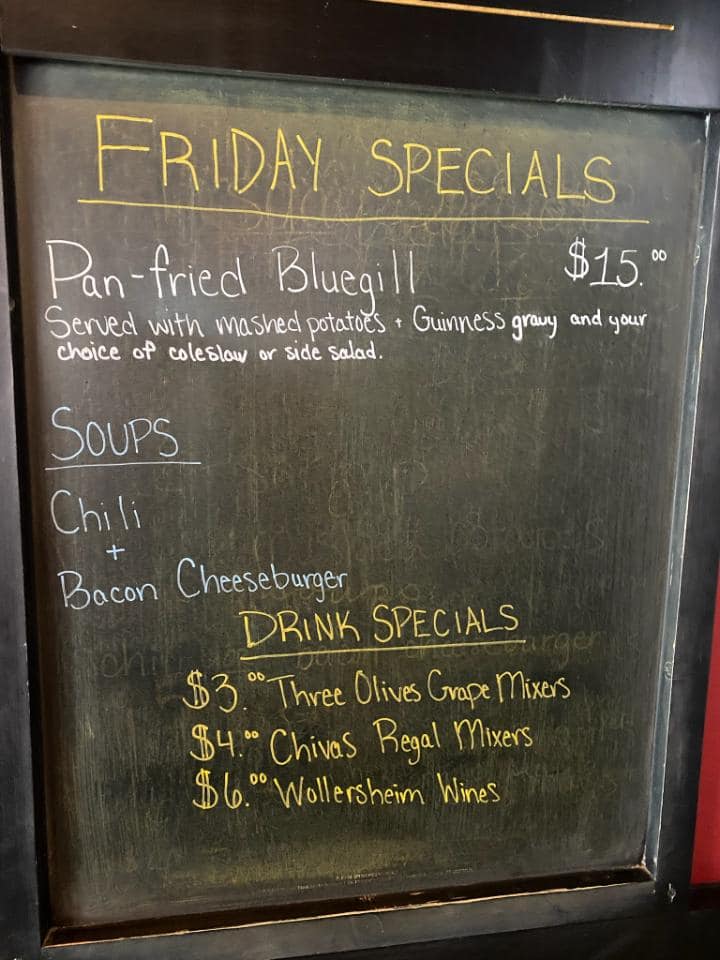 FRIDAY SPECIALS
Pan-fried Bluegill $15.00
Served with mashed potatoes + Guinness gravy and your
choice of coleslaw or side salad.
SOUPS
Chili
+
Bacon Cheeseburger
DRINK SPECIALS
$3.00 Three Olives Grape Mixers
$4.00 Chivas Regal Mixers
$6.00 Wollersheim Wines